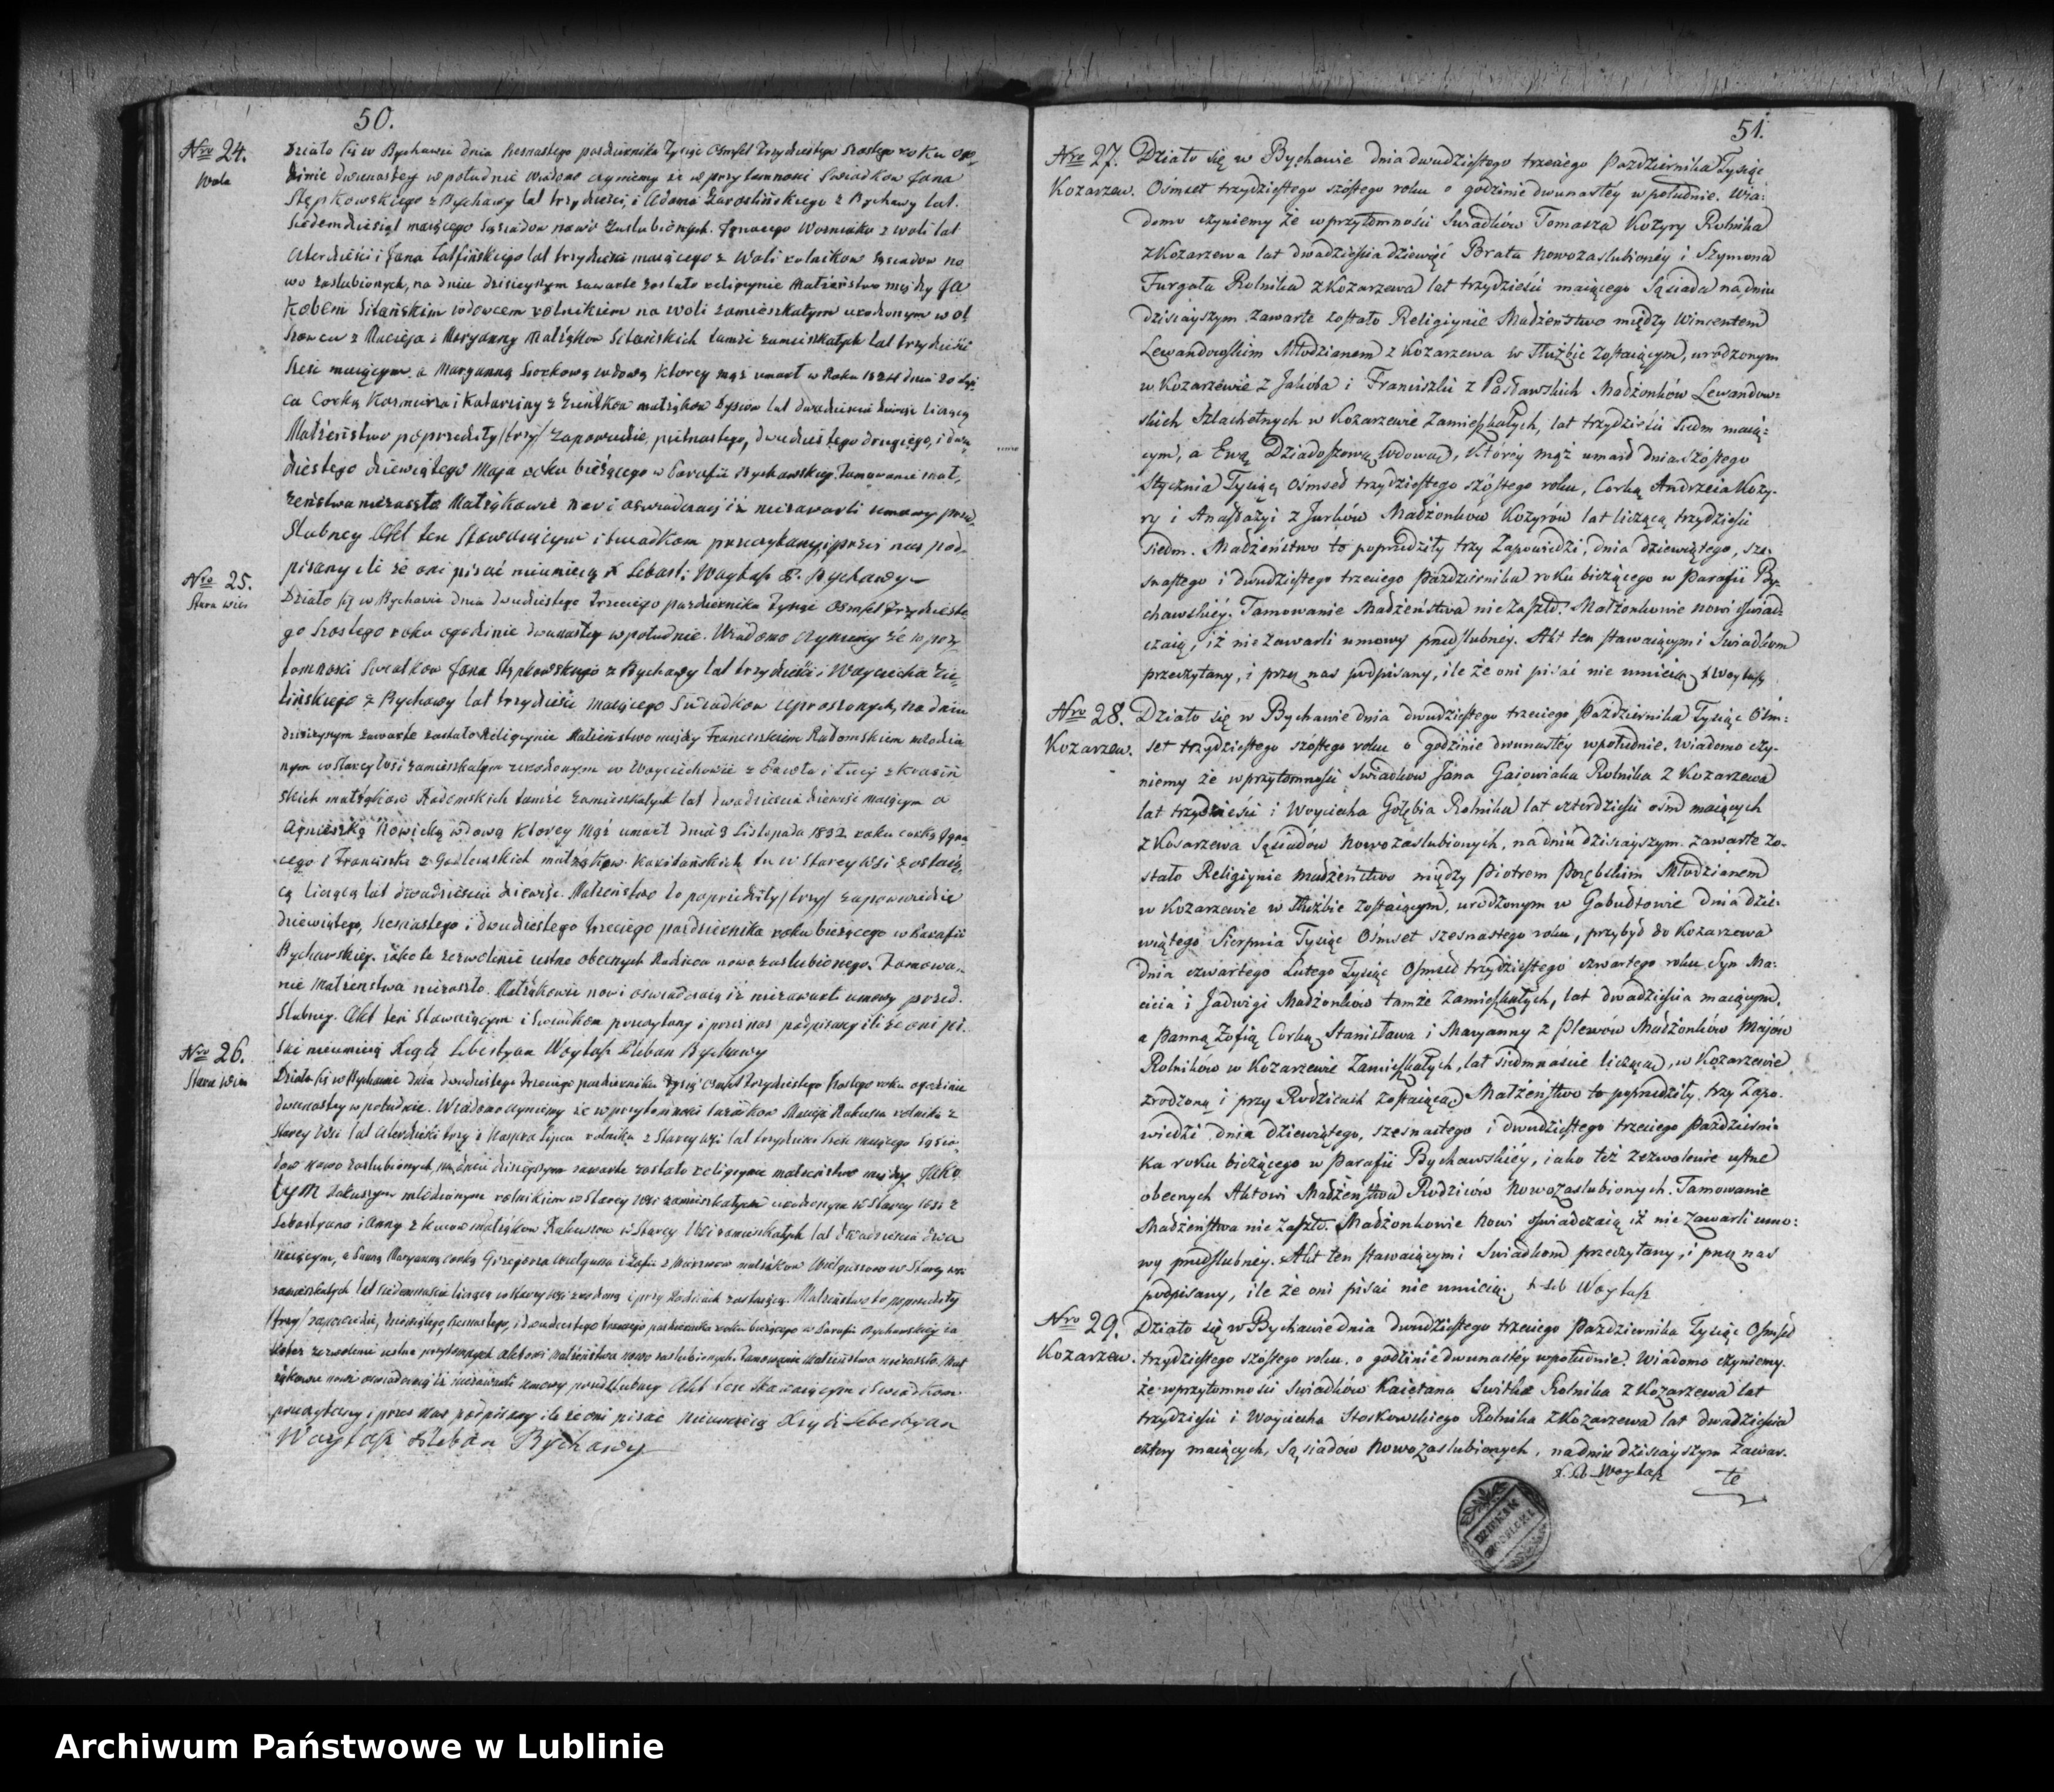 50.
Nro 24.
Wola
Działo się w Bychawie dnia szesnastego pazdziernika Tysiąc Osmset Trzydziestego Szostego roku ogo
dzinie dwunastey wpołudnie wiadomo czyniemy że w przytomnosci Swiadkow Jana
Stępkowskiego z Bychawy lat trzydziesci, i Adama z Bychawy lat.
Siedemdziesiąt maiącego Sąsiadow nowo Zaslubionych. Ignacego Wozniaka z woli lat
czterdziesci i Jana lat trzydziesci maiącego z Woli rolnikow Sąsiadow no
wo zaslubionych, na dniu dzisieyszym zawarte zostało religiynie Małzeństwo między Ja
kobem Sitańskim wdowcem rolnikiem na Woli zamieszkałym urodzonym w Ol
szowcu z Macieja i Maryanny Małżąkow Sitańskich tamże zamieszkałych lat trzydziesci
Szesc maiącym. a Maryanną wdową ktorey mąż umarł w Roku 1824 dnia 20
ca Corką Kazmierza i Katarzyny z małżąkow lat dwadziescia dziewięc liczącą
Małżeństwo poprzedziły /trzy/ zapowiedzie, piętnastego, dwudziestego drugiego, i dwu
dziestego dziewiątego Maja roku bieżącego w Parafii Bychawskiey. Tamowanie mał,
żeństwa niezaszło Małżąkowie nowi oswiadczaią iż niezawarli umowy przed
Slubney Akt ten Stawaiącym i Swiadkom przeczytany, i przez nas pod-
pisany ile że oni pisać nieumieią X Sebast: Woytasz P. Bychawy
Nro 25.
Stara wies
Działo się w Bychawie dnia dwudziestego trzeciego pazdziernika Tysiąc Osmset Trzydzieste
go Szostego roku ogodzinie dwunastey wpołudnie. Wiadomo czyniemy że wprzy
tomnosci Swiatkow Jana Stępkowskiego z Bychawy lat trzydziesci i Woyciecha Zie
lińskiego z Bychawy lat trzydziesci maiącego Swiadkow uproszonych, na dniu
dzisieyszym zawarte zostało Religiynie Małżeństwo między Franciszkiem Radomskiem młodzia
nym wStarey Wsi zamieszkałym urodzonym w Woyciechowie z Pawła i Łucyi z Krasiń
skich małżąkow Radomskich tamże zamieszkałych lat dwadziescia dziewięc maiącym a
Agnieszką Nowicką wdową ktorey Mąż umarł dnia 9 Listopada 1832 roku corką Igna
cego i Franciszki z małżąkow tu w Starey Wsi zostaią,
cą liczącą lat dwadziescia dziewięc. Małżeństwo to poprzedziły /trzy/ zapowiedzie
dziewiątego, szesnastego i dwudziestego trzeciego pazdziernika roku bieżącego w Parafii
Bychawskiey. iako te zezwolenie ustne obecnych Rodzicow nowo zaslubionego. Tamowa,
nie Małżenstwa niezaszło. Małżąkowie nowi oswiadczaią iż niezawarli umowy przed.
Slubney. Akt ten Stawaiącym i Swiadkom przeczytany i przez nas podpisany ile że oni pi
sac nieumieią Xiądz Sebestyan Woytasz Pleban Bychawy
Nro 26.
Stara Wies
Działo się w Bychawie dnia dwudziestego trzeciego pazdziernika Tysiąc Osmset Trzydziestego Szostego roku ogodzinie
dwunastey w południe. Wiadomo czyniemy że w przytomnosci Swiadkow Macieja Rakusza rolnika z
Starey Wsi lat czterdziesci trzy i Kaspra Lipca rolnika z Starey Wsi lat trzydziesci maiącego Sąsia
dow nowo zaslubionych, na dniu dzisieyszym zawarte zostało religiynie małżeństwo między
młodzianym rolnikiem w Starey Wsi zamieszkałym urodzonym w Starey Wsi z
Sebastyana i Anny z małżąkow Rakuszow w Starey Wsi zamieszkałych lat dwadziescia dwa
maiącym, a Panną Maryanną corką Grzegorza i Zofii z małżąkow w Starey wsi
zamieszkałych lat siedemnascie liczącą w Starey Wsi zrodzoną i przy Rodzicach zostaiącą. Małżeństwo to poprzedziły
/trzy/ zapowiedzie, dziewiątego, szesnastego, i dwudziestego trzeciego pazdziernika roku bieżącego w Parafii Bychawskiey ia
kotez zezwolenie ustne przytomnych aktowi małżeństwa nowo zaslubionych. Tamowanie Małżeństwa niezaszło. Mał
żąkowie nowi oswiadczaią iż niezawarli umowy przedslubney Akt ten Stawaiącym i Swiadkom
przeczytany i przez nas podpisany ile że oni pisac nieumieią Xiądz Sebestyan
Woytasz Pleban Bychawy
51.
Nro 27.
Kozarzew.
Działo się w Bychawie dnia dwudziestego trzeciego Pazdziernika Tysiąc
Ośmset trzydziestego szóstego roku o godzinie dwunastéy wpołudnie. Wia:
domo czyniemy że wprzytomności Swiadków Tomasza Kozyry Rolnika
z Kozarzewa lat dwadzieścia dziewięć Brata nowozaslubionéy i Szymona
Furgała Rolnika z Kozarzewa lat trzydzieści maiącego Sąsiada na dniu
dzisiayszym zawarte zostało Religiynie Małżeństwo między Wincentem
Lewandowskim Młodzianem z Kozarzewa w Służbie Zostaiącym, urodzonym
w Kozarzewie z Jakóba i Franciszki z Pasławskich Małżonków Lewandow:
skich Szlachetnych w Kozarzewie Zamieszkałych, lat trzydzieści siedm maią:
cym, a Ewą Dziadoszową Wdową, Któréy mąż umarł dnia szóstego
Stycznia Tysiąc Ośmset trzydziestego szóstego roku, Corką Andrzeia Kozy-
ry i Anastazyi z Jurków Małżonków Kozyrów lat liczącą trzydzieści
siedm. Małżeństwo to poprzedziły trzy Zapowiedzi, dnia dziewiątego, sze-
snastego i dwudziestego trzeciego Pazdziernika roku bieżącego w Parafii By-
chawskiéy. Tamowanie Małżeństwa nie Zaszło. Małżonkowie nowi oświad-
czaią, iż nie Zawarli umowy przedslubnéy. Akt ten stawaiącym i Swiadkom
przeczytany, i przez nas podpisany, ile że oni pisać nie umieią X Woytasz
Nro 28.
Kozarzew.
Działo się w Bychawie dnia dwudziestego trzeciego Pazdziernika Tysiąc Ośm:
set trzydziestego szóstego roku o godzinie dwunastéy wpołudnie. Wiadomo czy-
niemy że wprzytomności Swiadków Jana Gaiowiaka Rolnika z Kozarzewa
lat trzydzieści i Woyciecha Gołębia Rolnika lat czterdzieści ośm maiących
z Kozarzewa Sąsiadów Nowozaslubionych, na dniu dzisiayszym Zawarte Zo-
stało Religiynie małżeństwo między Piotrem Porębskim Młodzianem
w Kozarzewie w Służbie Zostaiącym, urodzonym w Gałudzowie dnia dzie-
wiątego Sierpnia Tysiąc Ośmset szesnastego roku, przybył do Kozarzewa
dnia czwartego Lutego Tysiąc Ośmset trzydziestego czwartego roku Syn Ma:
cieia i Jadwigi Małżonków tamże Zamieszkałych, lat dwadzieścia maiącym,
a Panną Zofią Corką Stanisława i Maryanny z Plewów Małżonków Majów
Rolników w Kozarzewie Zamieszkałych, lat siedmnaście liczącą, w Kozarzewie
zrodzoną i przy Rodzicach zostaiącą Małżeństwo to poprzedziły trzy Zapo-
wiedzi dnia dziewiątego, szesnastego i dwudziestego trzeciego Pazdzierni-
ka roku bieżącego w Parafii Bychawskiéy, iako też zezwolenie ustne
obecnych Aktowi Małżeństwa Rodziców Nowozaslubionych. Tamowanie
Małżeństwa nie Zaszło. Małżonkowie Nowi oświadczaią iż nie Zawarli umo:
wy przedslubnéy. Akt ten stawaiącym i Swiadkom przeczytany, i przez nas
podpisany, ile że oni pisać nie umieią, X Seb Woytasz
Nro 29.
Kozarzew.
Działo się w Bychawie dnia dwudziestego trzeciego Pazdziernika Tysiąc Ośmset
trzydziestego szóstego roku o godzinie dwunastéy wpołudnie. Wiadomo czyniemy.
że wprzytomności Swiadków Kaietana Switka Rolnika z Kozarzewa lat
trzydzieści i Woyciecha Stoskowskiego Rolnika z Kozarzewa lat dwadzieścia
cztery maiących, Sąsiadów Nowozaslubionych, na dniu dzisiayszym Zawar-
X. Seb Woytasz te
Archiwum Państwowe w Lublinie